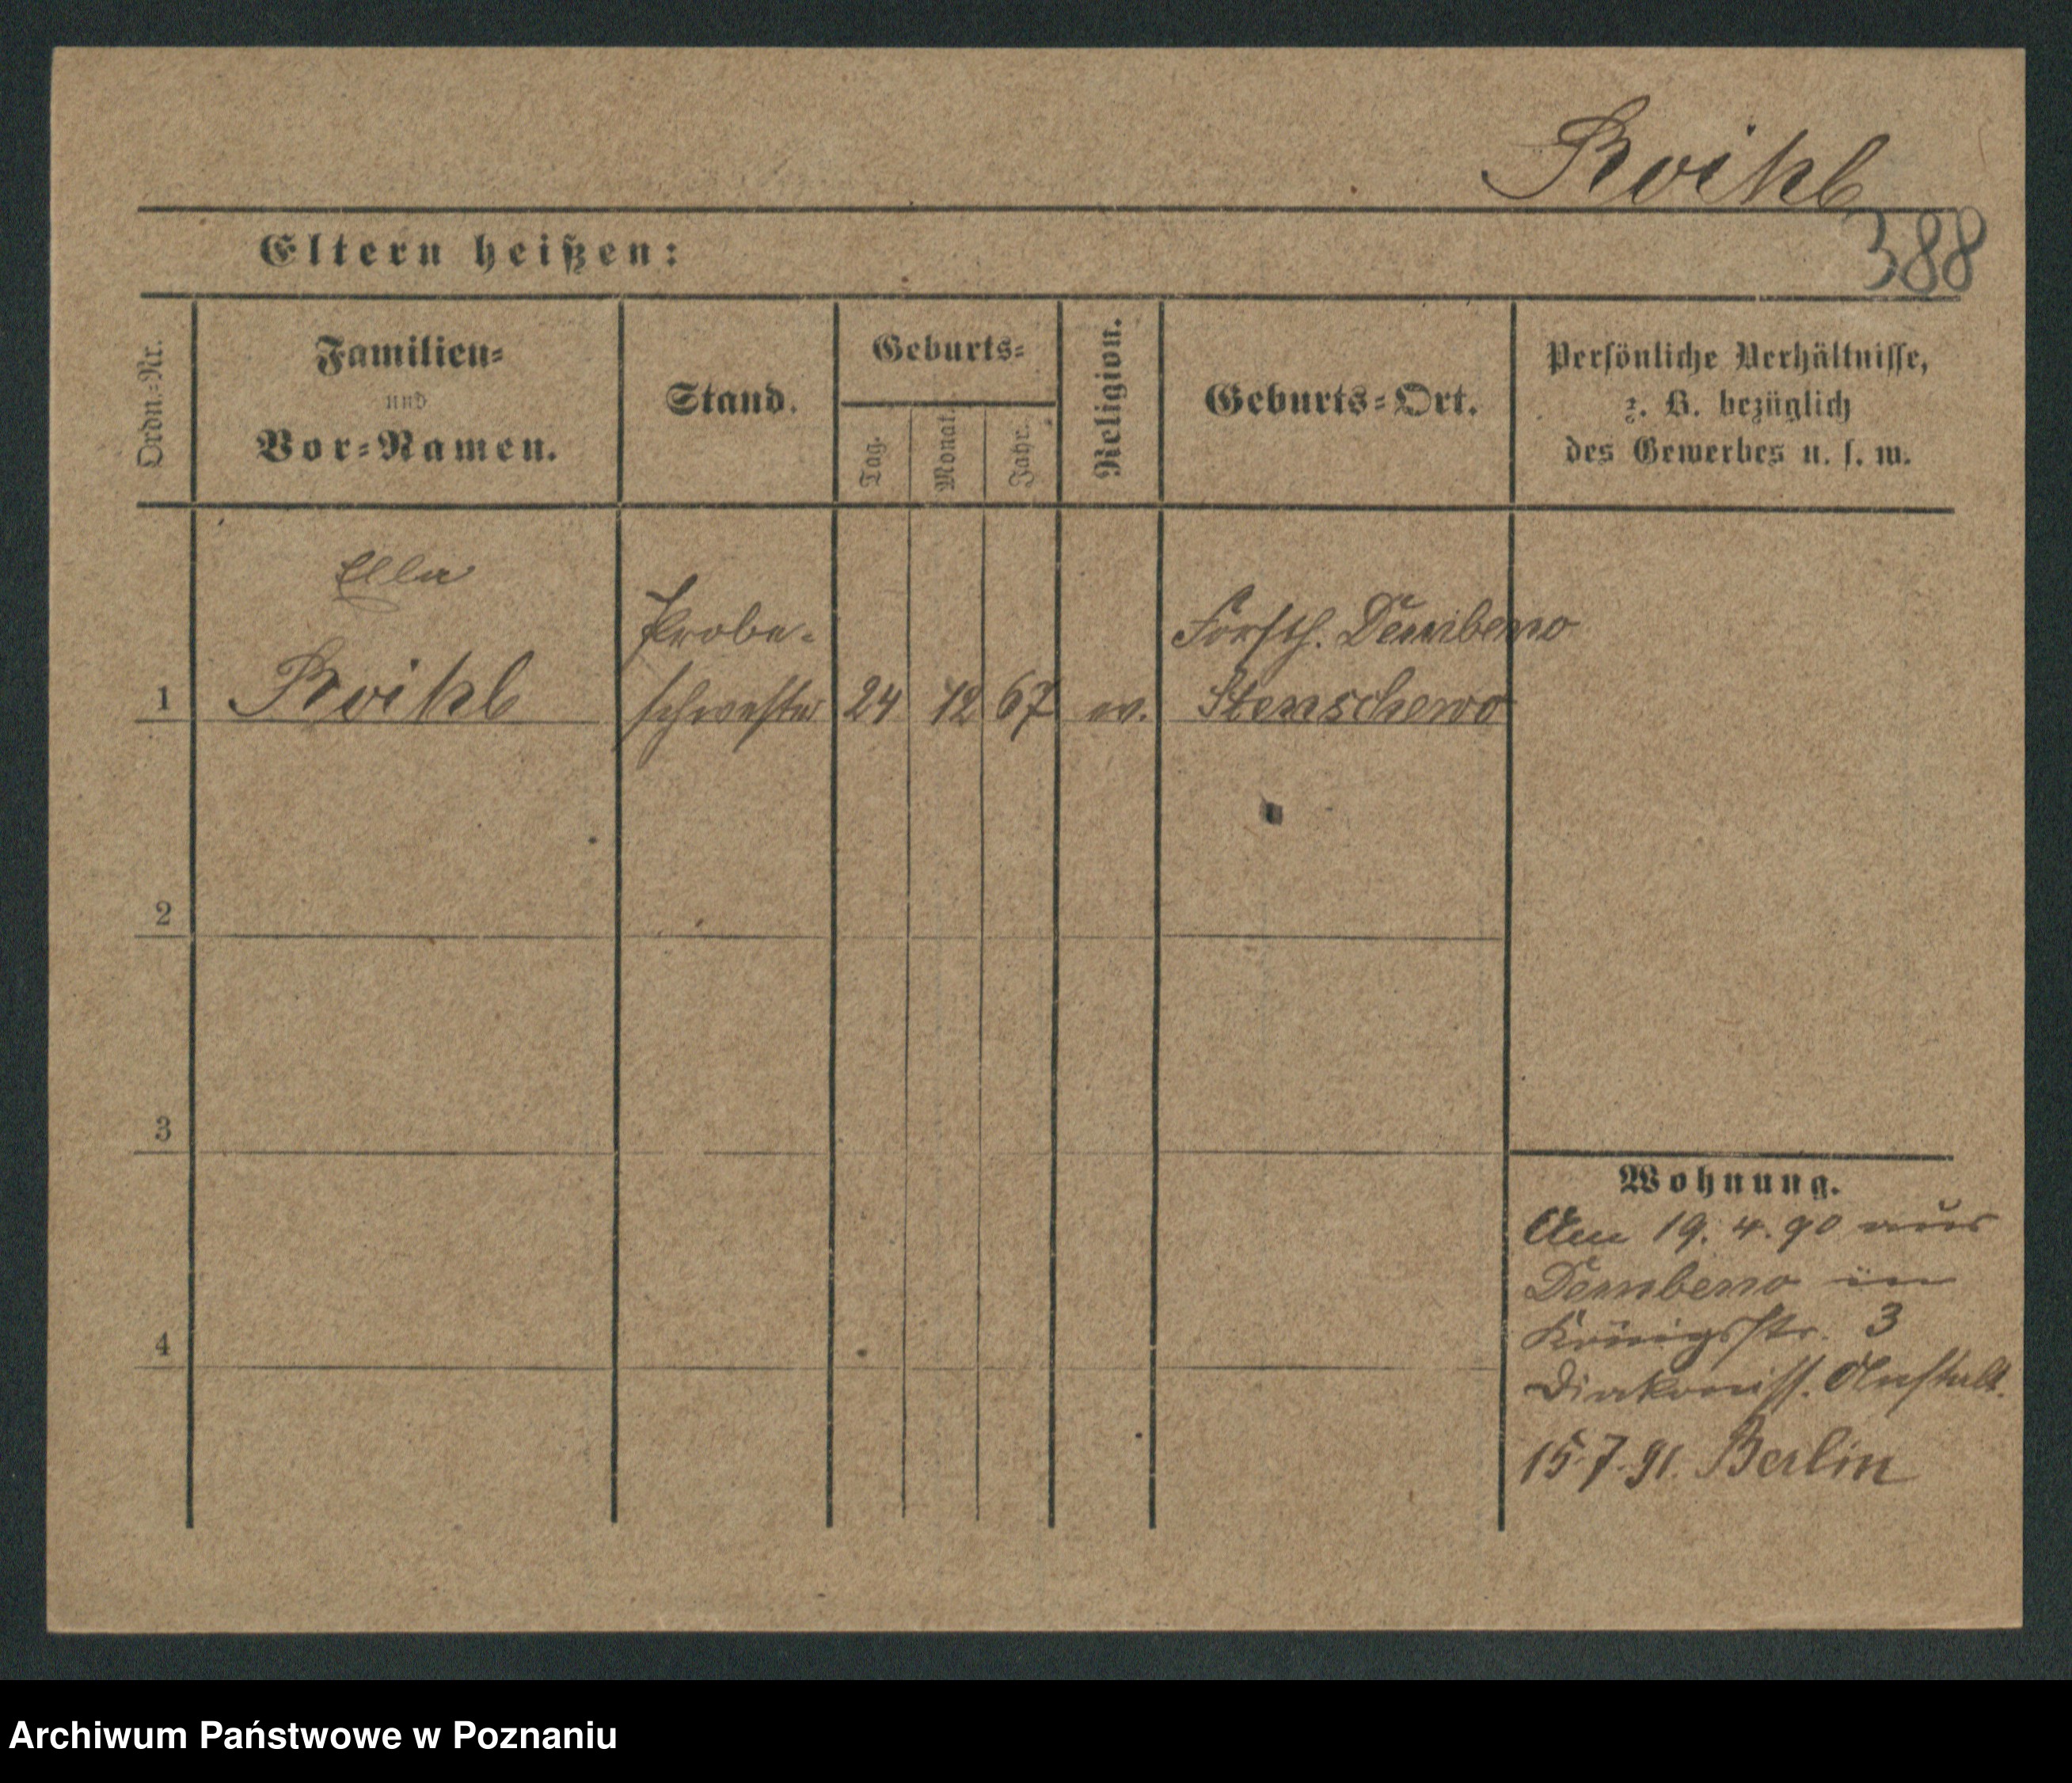 Roihl
388
Eltern heißen:
Ordn.-Nr.
Familien-
und
Vor-Namen.
Stand.
Geburts-
Tag.
Monat.
Jahr.
Religion.
Geburts-Ort.
Persönliche Verhältnisse,
z. B. bezüglich
des Gewerbes u. s. w.
Ella
Probe-
Forsth. Dembeno
1 Roihl schwester 24 12 67 ev. Stenschewo
2
3
4
Wohnung.
Am 19. 4. 90 aus
Dembeno in
Königsstr. 3
Diakoniss. Anstalt.
15.7.91. Berlin
Archiwum Państwowe w Poznaniu